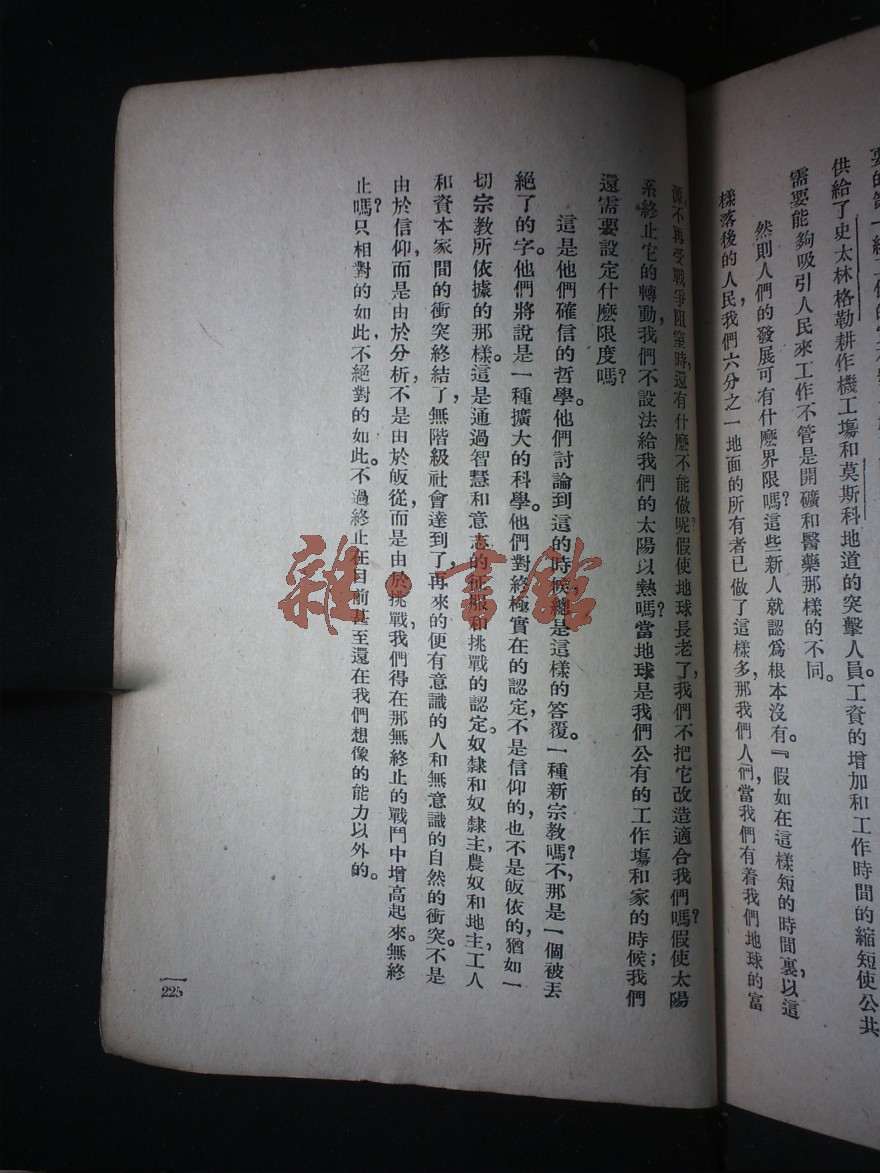 供給了史太林格勒耕作機工場和莫斯科地道的突擊人員。工資的增加和工作時間的縮短使公共
需要能夠吸引人民來工作不管是開礦和醫藥那樣的不同。
然則人們的發展可有什麽界限嗎?這些新人就認爲根本沒有。『假如在這樣短的時間裏,以這
樣落後的人民,我們六分之一地面的所有者已做了這樣多,那我們人們,當我們有着我們地球的富
源,不再受戰爭阻窒時,還有什麽不能做呢?假使地球長老了,我們不把它改造適合我們嗎?假使太陽
系終止它的轉動,我們不設法給我們的太陽以熱嗎?當地球是我們公有的工作場和家的時候;我們
還需要設定什麽限度嗎?
這是他們確信的哲學。他們討論到這的時候,總是這樣的答覆。一種新宗教嗎?不,那是一個被丟
絕了的字。他們將說是一種擴大的科學。他們對終極實在的認定,不是信仰的,也不是皈依的,猶如一
切宗教所依據的那樣。這是通過智慧和意志的征服和挑戰的認定。奴隸和奴隸主,農奴和地主,工人
和資本家間的衝突終結了,無階級社會達到了,再來的便有意識的人和無意識的自然的衝突。不是
由於信仰,而是由於分析,不是由於皈從,而是由於挑戰,我們得在那無終止的戰鬥中增高起來。無終
止嗎?只相對的如此,不絕對的如此。不過終止在目前甚至還在我們想像的能力以外的。
225
雜·書館